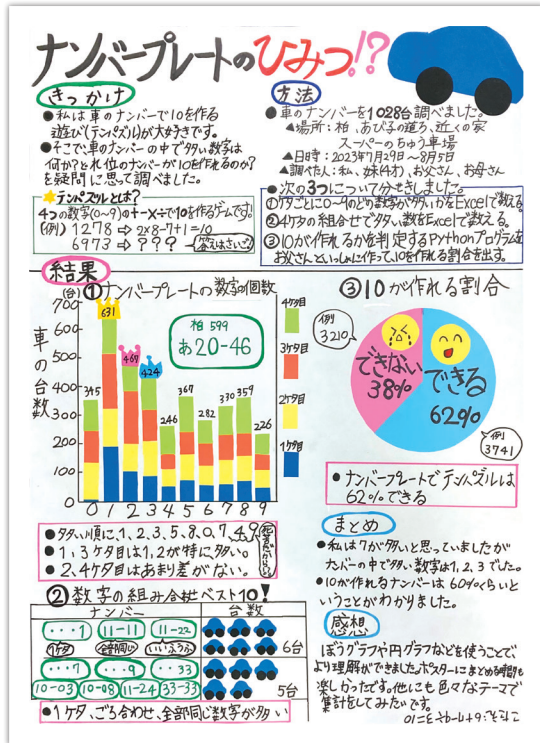 ナンバープレートのひみつ!?
きっかけ
●私は車のナンバーで10を作る
遊び(テンパズル)が大好きです。
●そこで、車のナンバーの中で多い数字は
何か?どれ位のナンバーが10を作れるのか?
を疑問に思って調べました。
テンパズルとは?
4つの数字(0~9)の+-×÷で10を作るゲームです。
(例) 1278 ⇒ 2×8-7+1=10
6973 ⇒ ? ? ?
答えはさいご
方法
●車のナンバーを1028台調べました。
▲場所:柏、あび子の道ろ、近くの家
スーパーのちゅう車場
▲日時:2023年7月29日~8月5日
▲調べた人:私、妹(4才)、お父さん、お母さん
●次の3つについて分せきしました。
①ケタごとに0~9のどの数字が多いかをExcelで数える。
②4ケタの組合せで多い数をExcelで数える。
③10が作れるかを判定するPythonプログラムを
お父さんといっしょに作って、10を作れる割合を出す。
結果
①ナンバープレートの数字の個数
(台)
車の台数
700
600
500
400
300
200
100
0
345
631
467
424
246
367
282
330
359
226
0 1 2 3 4 5 6 7 8 9
柏 599
あ20-46
4ケタ目
3ケタ目
2ケタ目
1ケタ目
●多い順に、1、2、3、5、8、0、7、6、4、9
●1、3ケタ目は1、2が特に多い。
●2、4ケタ目はあまり差がない。
②数字の組み合せベスト10!
ナンバー 台数
・・・1 11-11 11-22
1ケタ 全部同じ いいふうふ
6台
・・・7 ・・・9 ・・33
10-03 10-08 11-24 33-33
5台
●1ケタ、ごろ合わせ、全部同じ数字が多い
③10が作れる割合
例
3210
できない
38%
できる
62%
例
3741
●ナンバープレートでテンパズルは
62%できる
まとめ
●私は7が多いと思っていましたが
ナンバーの中で多い数字は1、2、3でした。
●10が作れるナンバーは60%くらいと
いうことがわかりました。
感想
ぼうグラフや円グラフなどを使うことで
より理解ができました。ポスターにまとめる時間も
楽しかったです。他にも色々なテーマで
集計をしてみたいです。